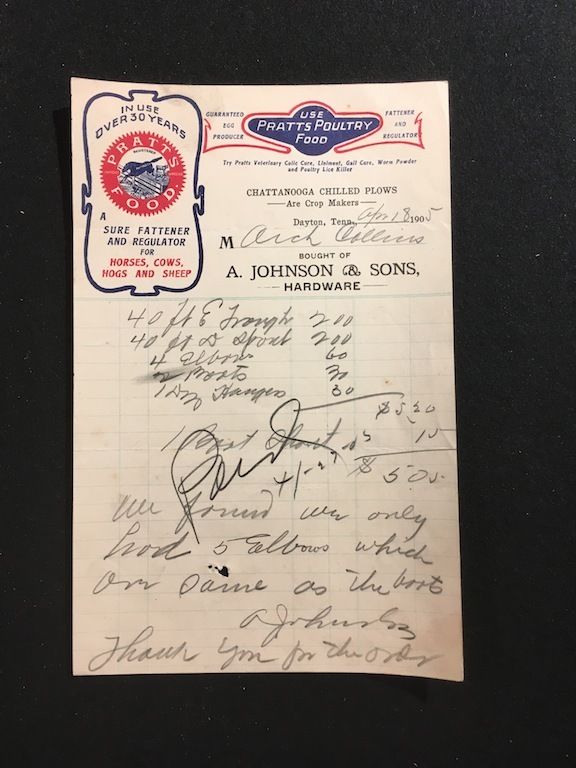 IN USE
OVER 30 YEARS
PRATTS
REGISTERED
FOOD
A
SURE FATTENER
AND REGULATOR
FOR
HORSES, COWS,
HOGS AND SHEEP
GUARANTEED
EGG
PRODUCER
USE
PRATTS POULTRY
FOOD
FATTENER
AND
REGULATOR
Try Pratts Veterinary Colic Cure, Liniment, Gall Cure, Worm Powder
and Poultry Lice Killer
CHATTANOOGA CHILLED PLOWS
—Are Crop Makers—
Dayton, Tenn., Apr 18 1905
M Arch Collins
BOUGHT OF
A. JOHNSON & SONS,
HARDWARE
40 ft E Trough 200
40 ft D Spout 200
4 Elbows 60
2 Boots 30
1 Doz Hanges 30
$5.20
1 Boot Short 15
Paid
4/-27
$ 505
We found we only
had 5 Elbows which
are same as the boots
A Johnson
Thank you for the order